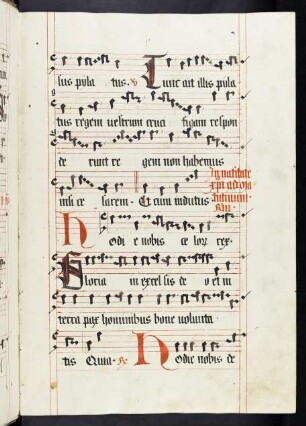 sus pyla tus. V Tunc ait illis pyla
tus regem vestrum cruci figam respon
de runt re gem non habemus
nisi ce sarem. Et cum indutus
In natiuitate
xpi ad
Hodi e nobis ce lor rex
Gloria in excel sis de o et in
terra pax hominibus bone volunta
tis Quia. R Hodie nobis de